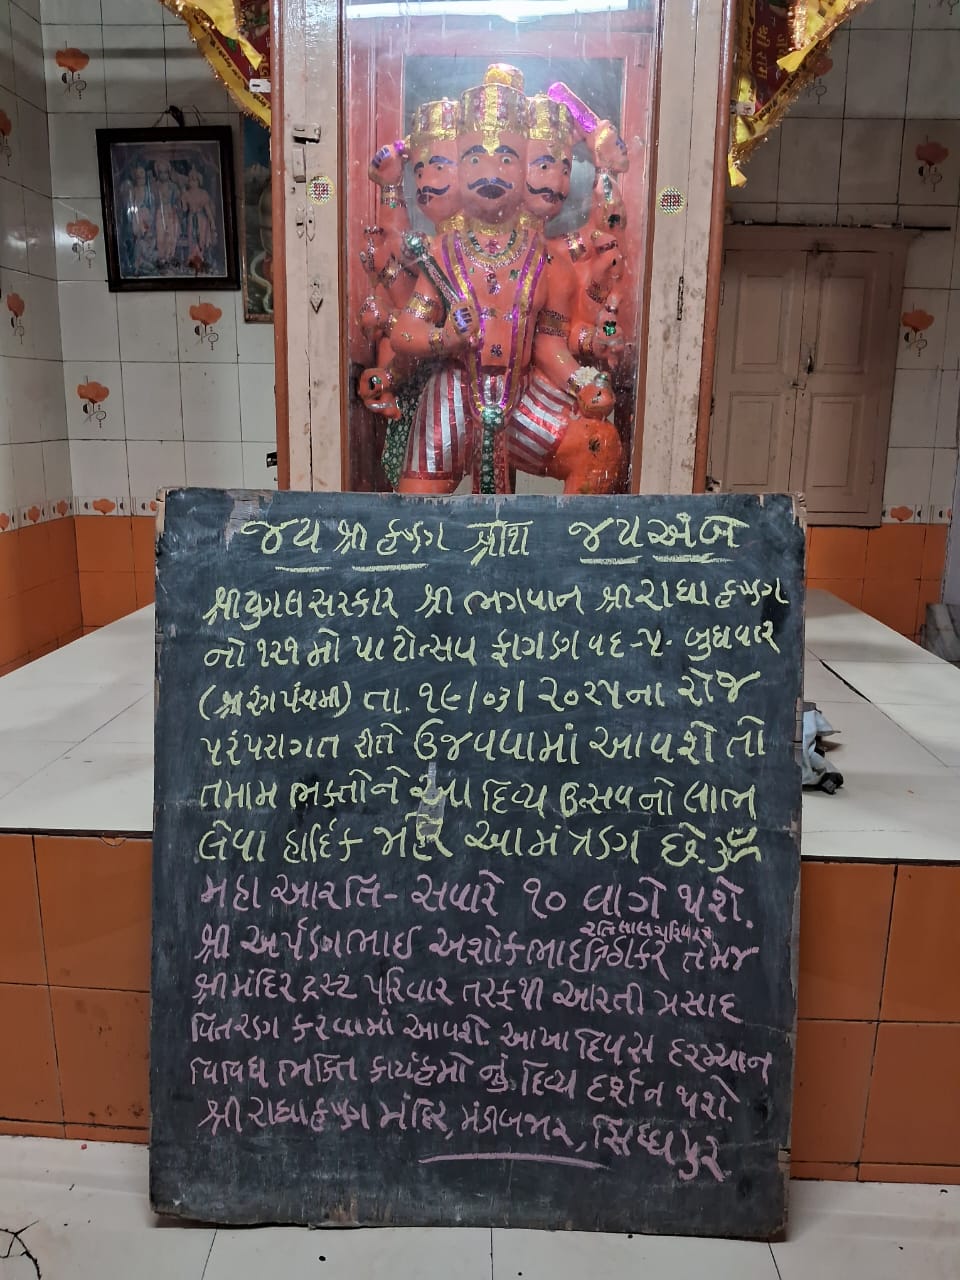 જય શ્રી કૃષ્ણ શ્રીશ જય અંબે
શ્રી યુગલ સરકાર શ્રી ભગવાન શ્રી રાધા કૃષ્ણ
નો ૧૨૧ મો પાટોત્સવ ફાગણ વદ-૫- બુધવાર
(શ્રી રંગ પંચમી) તા. ૧૯/૦૩/૨૦૨૫ના રોજ
પરંપરાગત રીતે ઉજવવામાં આવશે તો
તમામ ભક્તોને આ દિવ્ય ઉત્સવ નો લાભ
લેવા હાર્દિક આમંત્રણ છે. ૐ
મહા આરતિ- સવારે ૧૦ વાગે થશે.
રતિલાલ પરિવાર
શ્રી અર્પણભાઈ અશોકભાઈ ઠાકર તેમજ
શ્રી મંદિર ટ્રસ્ટ પરિવાર તરફથી આરતી પ્રસાદ
વિતરણ કરવામાં આવશે આખા દિવસ દરમ્યાન
વિવિધ ભક્તિ કાર્યક્રમો નું દિવ્ય દર્શન થશે.
શ્રી રાધા કૃષ્ણ મંદિર, મંડીબજાર, સિધ્ધપુર